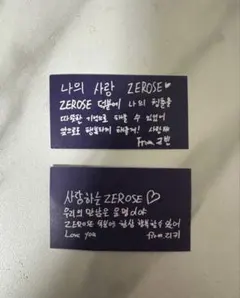 나의 사랑 ZEROSE♥
ZEROSE 덕분에 나의 청춘을
따뜻한 기억으로 채울 수 있었어
앞으로도 행복하게 해줄게! 사랑해
From 규빈
사랑하는 ZEROSE ♡
우리의 만남은 운명이야
ZEROSE 덕분에 항상 행복할 수 있어
Love you from 리키